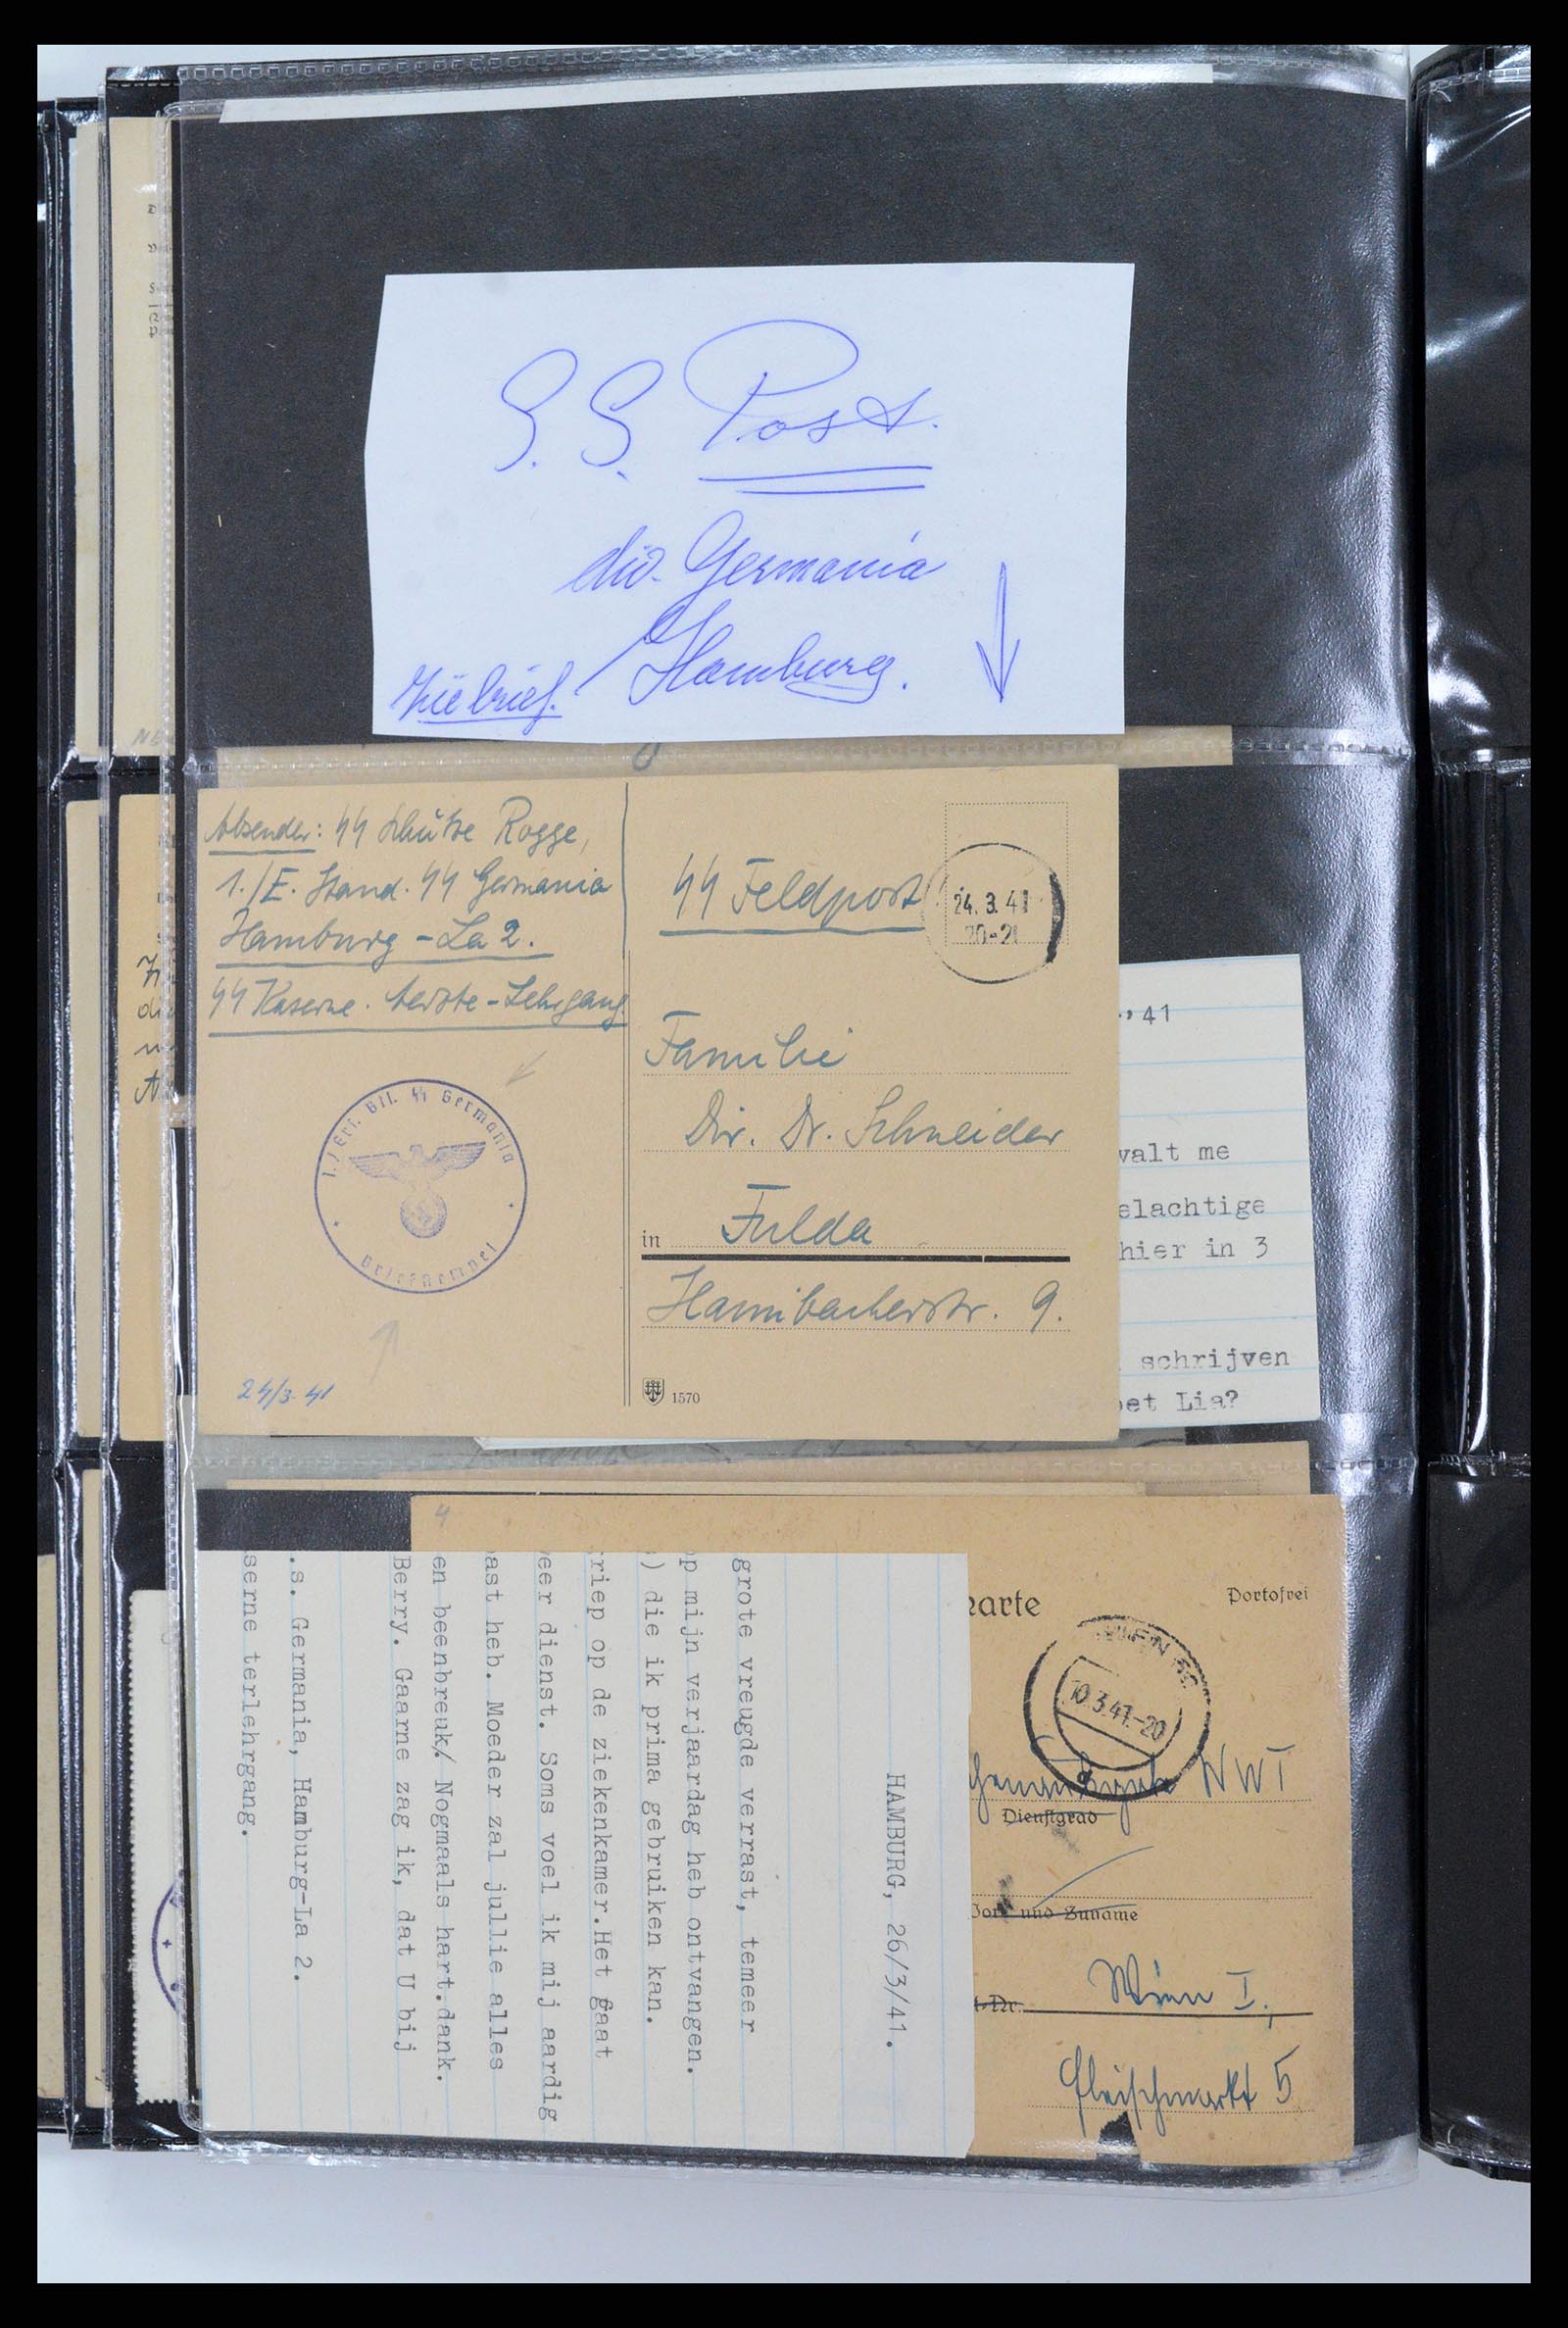 S.S. Post.
div. Germania
Hamburg.
zie brief.
Absender: SS Schütze Rogge,
1./E. Stand. SS Germania
Hamburg - La 2.
SS Kaserne. -Lehrgang.
SS Feldpost
24.3.41
20-21
Familie
Dir. Dr. Schneider
in Fulda
Hannibacherstr. 9.
1./Ers. Btl. SS Germania
Briefstempel
24/3.41
1570
41
valt me
elachtige
hier in 3
schrijven
oet Lia?
4
HAMBURG, 26/3/41.
grote vreugde verrast, temeer
op mijn verjaardag heb ontvangen.
) die ik prima gebruiken kan.
riep op de ziekenkamer.Het gaat
eer dienst. Soms voel ik mij aardig
ast heb. Moeder zal jullie alles
en beenbreuk/. Nogmaals hart.dank.
Berry. Gaarne zag ik, dat U bij
.s. Germania, Hamburg-La 2.
serne terlehrgang.
karte
Portofrei
WIEN
10.3.41.-20
NWT
Dienstgrad
Vor- und Zuname
t-Nr.
Wien I.,
Fleischmarkt 5